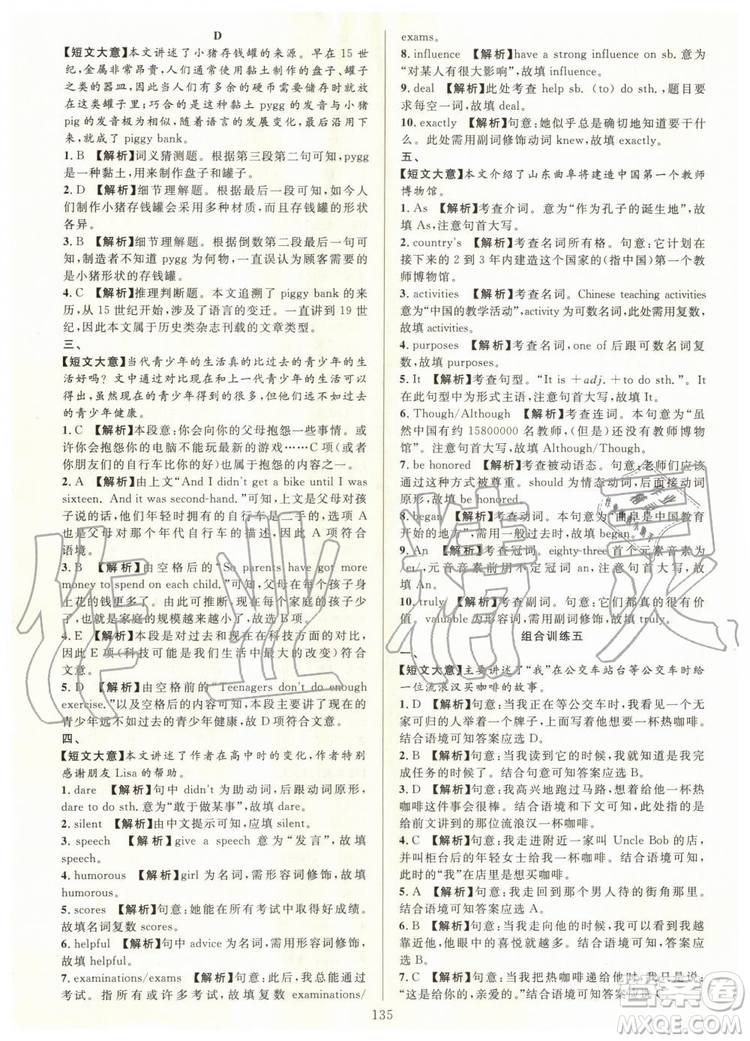 D
【短文大意】本文讲述了小猪存钱罐的来源。早在 15 世
纪,金属非常昂贵,人们使用黏土制作的盘子、罐子
之类的器皿,因此人们有多余的硬币需要储存时就放
在这类罐子里;巧合的是这种黏土 pygg 的发音与小猪
pig 的发音极为相似,随着语言的发展变化,最后就形
成了 piggy bank。
1. B 【解析】词义猜测题。根据第三段第二句可知,pygg
是一种黏土,用来制作盘子和罐子。
2. D 【解析】细节理解题。根据最后一段内容可知,人
们制作小猪存钱罐采用多种材质,而存钱罐的形状各
异。
3. B 【解析】细节理解题。根据倒数第二段最后一句可
知,制造者不知 pygg 为何物,一直误认为顾客需要的
是小猪形状的存钱罐。
4. C 【解析】推理判断题。本文追溯了 piggy bank 的来
历,从 15 世纪开始,涉及了语言的变迁。一直讲到 19 世
纪,因此本文属于历史类杂志刊载的文章类型。
三、
【短文大意】当代青少年的生活真的比过去的青少年的生
活好吗?虽然现在的孩子得到的很多,但是不如过去
的青少年健康。
1. C 【解析】本段意:你会向你的父母抱怨一些事情。或
许你会抱怨你的电脑不能玩最新的游戏……C 项(或
者你的朋友们的自行车比你的好)符合本段的内容。
2. A 【解析】由上文“And I didn't get a bike until I was
sixteen. And it was second-hand.”可知,父母在孩子
十六岁时给孩子的自行车是二手的,选项 A
也是父母对那个年代自行车的描述,因此 A 项符合
语境。
3. B 【解析】由空格后的“So parents have got more
money to spend on each child.”可知,父母在每个孩子身
上花的钱更多了,原因是现在家庭中的孩子少
了,也就是家庭的规模越来越小了,故 B 项正确。
4. E 【解析】本段意:科技在我们生活中发挥的作用,
因此 E 项(科技可能是我们生活中最大的改变)符合
文意。
5. D 【解析】由空格前的“Teenagers don't do enough
exercise.”可知,青少年的锻炼不够。由此可知,现在的
青少年远不如过去的青少年健康,故 D 项符合文意。
四、
【短文大意】本文讲述了作者在高中时的变化,作者特别
感谢朋友 Lisa 的帮助。
1. dare 【解析】句中 didn't 为助动词,后跟动词原形,
dare to do sth. 意为“敢于做某事”,故填 dare。
2. silent 【解析】由中文提示可知,应填 silent。
3. speech 【解析】give a speech 意为“发言”,故填
speech。
4. humorous 【解析】girl 为名词,需用形容词修饰,故
填 humorous。
5. scores 【解析】句意:她能在所有考试中取得好成绩。
故填名词复数 scores。
6. helpful 【解析】句中 advice 为名词,需用形容词修饰,
故填 helpful。
7. examinations/exams 【解析】句意:此后,我总能通过
考试。指所有或许多考试,故填复数 examinations/
exams。
8. influence 【解析】have a strong influence on sb. 意为
“对某人有很大影响”,故填 influence。
9. deal 【解析】此处考查 help sb. (to) do sth.,题目要
求每空一词,故填 deal。
10. exactly 【解析】句意:她似乎总是确切地知道要干什
么。此处需用副词修饰动词 know,故填 exactly。
五、
【短文大意】本文介绍了山东曲阜将建造中国第一个教师
博物馆。
1. As 【解析】考查介词。意为“作为孔子的诞生地”,故
填 As。注意句首大写。
2. country's 【解析】考查名词所有格。句意:它计划在
接下来的 2 到 3 年内建造这个国家的(指中国)第一个教
师博物馆。
3. activities 【解析】考查名词。Chinese teaching activities
意为“中国的教学活动”,activity 为可数名词,此处需用复数,
故填 activities。
4. purposes 【解析】考查名词。one of 后跟可数名词复
数,故填 purposes。
5. It 【解析】考查句型。“It is +adj. +to do sth.”。It
在此句型中作为形式主语,意义符合本文语境,注意
句首大写,故填 It。
6. Though/Although 【解析】考查连词。本句意为“虽
然中国有约 15800000 名教师,但中国没有教师博物
馆”。注意句首大写,故填 Though/Although。
7. be honored 【解析】考查被动语态。句意:老师们应该
通过这种方式被尊重。should 为情态动词,后跟动词
原形,故填 be honored。
8. began 【解析】考查动词。句意为“曲阜是中国教育
开始的地方”,需用一般过去时,故填 began。
9. An 【解析】考查冠词。eighty-three 首个音素为元
音,元音音素前用不定冠词 an,注意句首大写,故
填 An。
10. truly 【解析】考查副词。句意:这些展览真的很有价
值。valuable 为形容词,故填 truly。
组合训练五
一、
【短文大意】本文主要讲述了“我”在公交车站台等公交车时给
一位流浪汉买咖啡的故事。
1. D 【解析】句意:当我正在等公交车时,我看到一个无
家可归的人举着一个牌子,上面写着想要一杯热咖啡。
结合语境可知答案应选 D。
2. B 【解析】句意:当我读到它的时候,我想我就是完
成任务的那个人。结合句意可知答案应选 B。
3. D 【解析】句意:我高兴地跑过马路,想着喝一杯热
咖啡将会很棒。结合语境和下文可知,我是给无家可
归的那位流浪汉一杯热咖啡。
4. C 【解析】句意:我跑到一家叫 Uncle Bob 的店,并
告诉站在柜台后的年轻女士给我一杯咖啡。结合语境
可知答案应选 C。
5. A 【解析】句意:当我付钱的时候,我越来越兴奋。
结合语境可知答案应选 A。
6. B 【解析】句意:我走出大门并穿过马路,当我越
靠近他,眼中的喜悦就越明显。结合语境可知答案应
选 B。
7. C 【解析】句意:当我把热咖啡递给他时,我说:
“这是你的,亲爱的。”结合语境可知答案应选 C。
135
作业精灵
答案圈
MXQE.COM